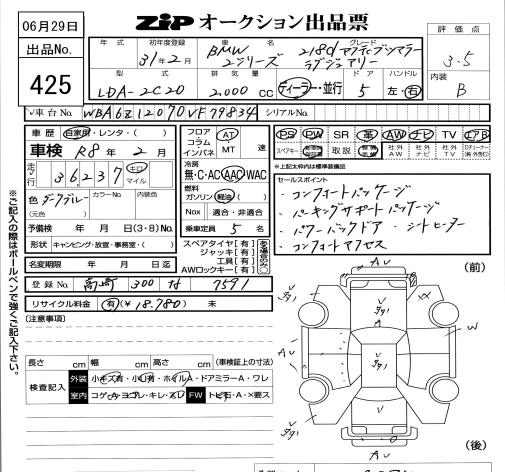 06月29日
出品No.
425
ZIP オークション出品票
評価点
3.5
内装
B
年式
初年度登録
31年2月
車名
BMW
2シリーズ
グレード
218d アクティブツアラー
ラグジュアリー
型式
LDA-2C20
排気量
2,000 CC
ディーラー・並行
ドア
5
ハンドル
左・右
車台No.
WBA6Z12070VF79834
シリアルNo.
車歴 自家用・レンタ・( )
車検 R8年2月
走行
36,237
キロ
マイル
色 ダークグレー
カラーNo.
内装色
(元色 )
予備検 年 月 日(3・8)No.
形状 キャンピング・放宣・事務室・( )
名変期限 年 月 日迄
フロア
コラム
インパネ
AT
MT 速
冷房
無・C・AC・AAC・WAC
燃料
ガソリン 軽油 ( )
Nox 適合・非適合
乗車定員 5 名
スペアタイヤ[有]
ジャッキ[有]
工具[有]
AWロックキー[有]
ある場合のみ〇
PS PW SR 革 AW ナビ TV エアB
スペアキー 取説 社外AW 社外ナビ 社外TV
※上記太枠内は標準装備品
セールスポイント
・コンフォートパッケージ
・パーキングサポートパッケージ
・パワーバックドア ・シートヒーター
・コンフォートアクセス
登録No. 高崎 300 7591
リサイクル料金 有(¥18,780) 未
[注意事項]
長さ cm 幅 cm 高さ cm (車検証上の寸法)
検査記入
外装 小キズ有・小凹有・ホイルA・ドアミラーA・ワレ
室内 コゲ・・キレ・スレ
FW トビ石・A・×要ス
※ご記入の際はボールペンで強くご記入下さい。
(前)
(後)
AU
XX
W
V
A